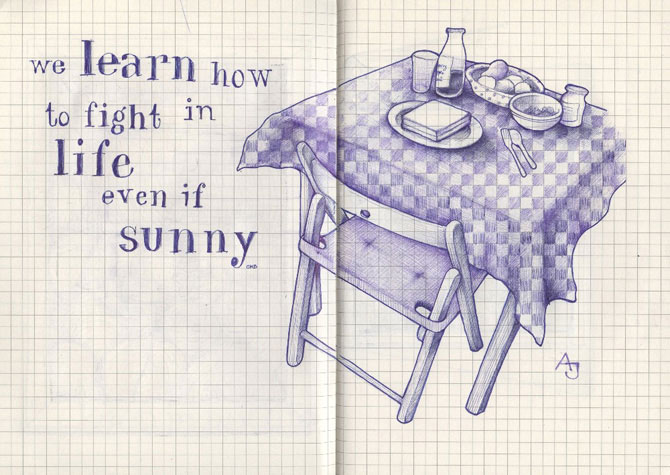 we learn how
to fight in
life
even if
sunny
AJ